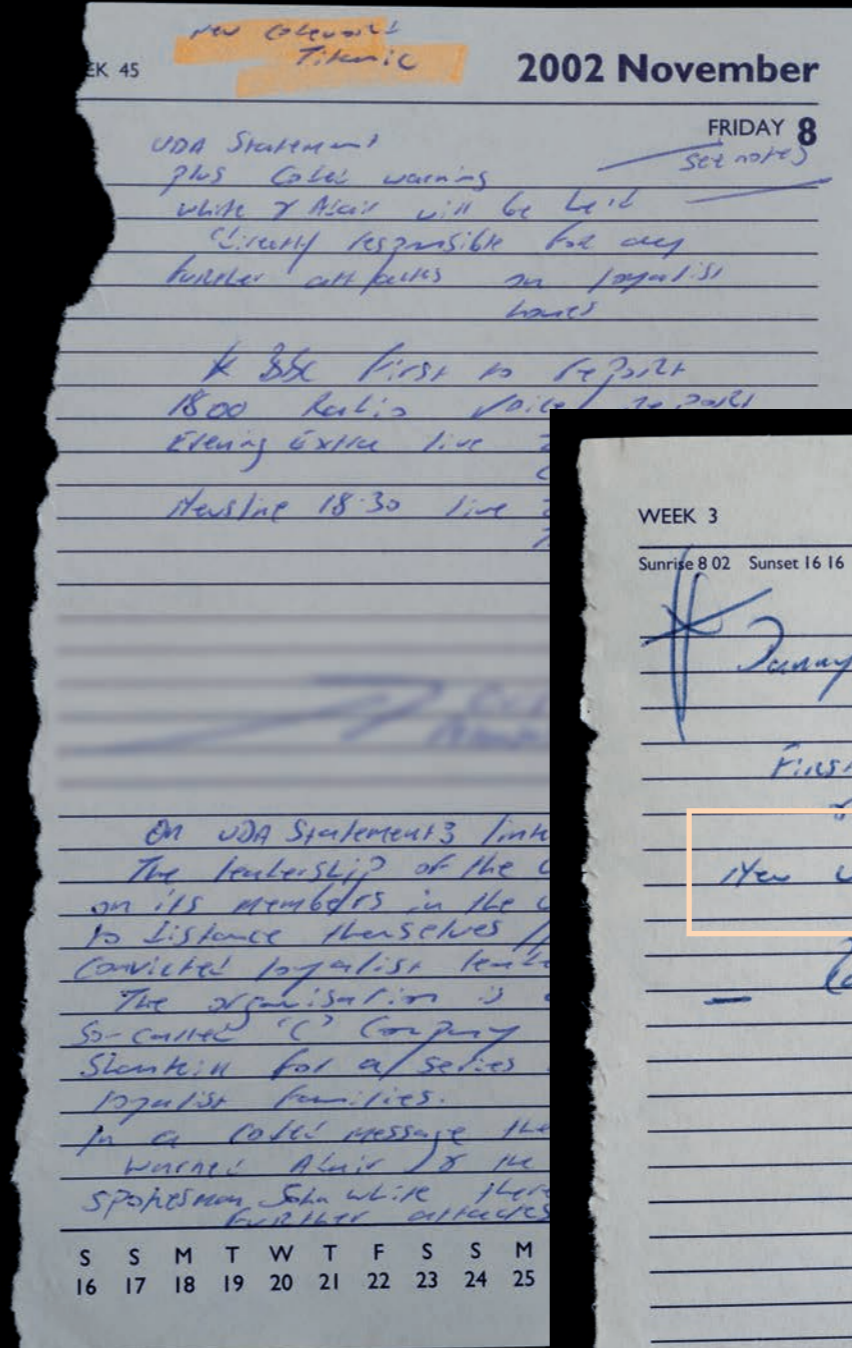 New codeword
Titanic
EK 45
2002 November
FRIDAY 8
see notes
UDA Statement
plus coded warning
White & Adair will be held
directly responsible for any
further attacks on loyalist
homes
* BBC first to report
18 00 Radio Voice report
Evening Extra live
Newsline 18.30 live
On UDA Statements
The leadership of the
on its members in the
to distance themselves
Convicted loyalist
The organisation is
So-called 'C' Company
Shankill for a series
loyalist families.
In a coded message the
warned Adair & the
spokesman John White there
further attacks
S S M T W T F S S M
16 17 18 19 20 21 22 23 24 25
WEEK 3
Sunrise 8 02 Sunset 16 16
First
New